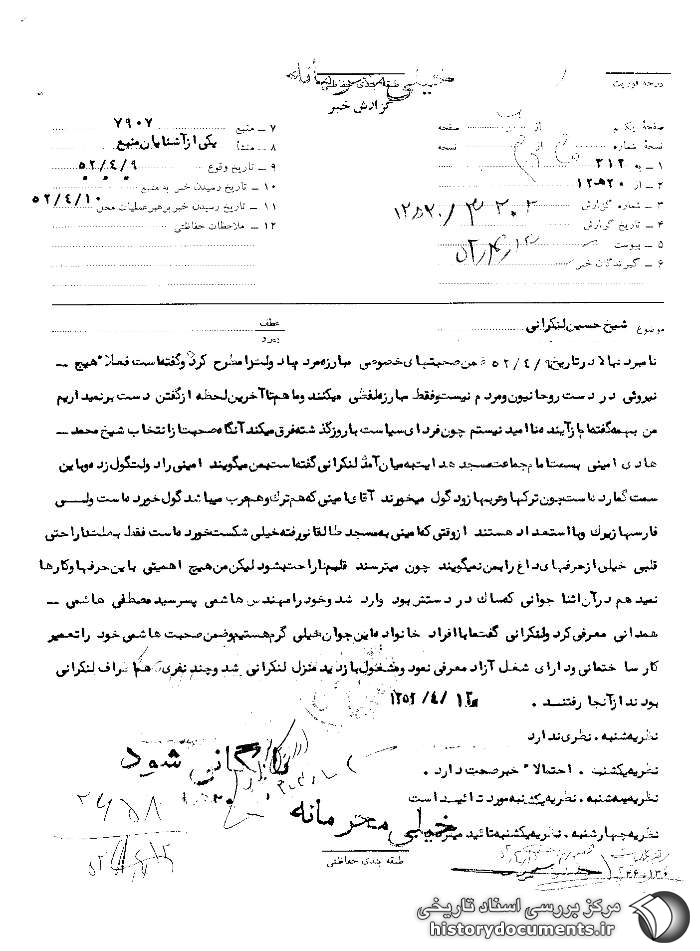 خیلی محرمانه
طبقه بندی حفاظتی
گزارش خبر
درجه فوریت
صفحه یکم از صفحه
نسخه شماره از نسخه
۱ ـ به ۳۱۲
۲ ـ از ۱۲ﻫ۲۰
۳ ـ شماره گزارش
۴ ـ تاریخ گزارش
۵ ـ پیوست
۶ ـ گیرندگان خبر
۷ ـ منبع ۷۹۰۷
۸ ـ منشأ یکی از آشنایان منبع
۹ ـ تاریخ وقوع ۵۲/۴/۹
۱۰ ـ تاریخ رسیدن خبر به منبع
۱۱ ـ تاریخ رسیدن خبر برهبر عملیات محل ۵۲/۴/۱۰
۱۲ ـ ملاحظات حفاظتی
موضوع شیخ حسین لنکرانی
عطف
پیرو
نامبرده بالا در تاریخ ۵۲/۴/۹ ضمن صحبتهای خصوصی مبارزه مردم با دولت را مطرح کرد و گفته است فعلا" هیچ ـ
نیروئی در دست روحانیون و مردم نیست و فقط مبارزه لفظی میکنند و ما هم تا آخرین لحظه از گفتن دست برنمیداریم
من بهمه گفته‌ام از آینده ناامید نیستم چون فردای سیاست با روز گذشته فرق میکند آنگاه صحبت از انتخاب شیخ محمد ـ
هادی امینی بسمت امام جماعت مسجد هدایت به میان آمد لنکرانی گفته است بمن میگویند امینی را دولت گول زده و باین
سمت گمارده است چون ترکها و عربها زود گول میخورند آقای امینی که هم ترک و هم عرب میباشد گول خورده است ولی
فارسها زیرک و با استعداد هستند از وقتی که امینی به مسجد طالقانی رفته خیلی شکست خورده است فقط به علت ناراحتی
قلبی خیلی از حرفهای داغ را بمن نمیگویند چون میترسند قلبم ناراحت بشود لیکن من هیچ اهمیتی باین حرفها و کارها
نمیدهم در آن اثنا جوانی که ساک در دستش بود وارد شد و خود را مهندس هاشمی پسر سید مصطفی هاشمی ـ
همدانی معرفی کرد و لنکرانی گفت ما با افراد خانواده این جوان خیلی گرم هستیم و ضمن صحبت هاشمی خود را تعمیر
کار ساختمانی و دارای شغل آزاد معرفی نمود و مشغول بازدید منزل لنکرانی شد و چند نفری که اطراف لنکرانی
بودند از آنجا رفتند . ۱۳۵۲/۴/۱۲
نظریه شنبه . نظری ندارد
نظریه یکشنبه . احتمالا" خبر صحت دارد .
نظریه سه‌شنبه . نظریه یکشنبه مورد تائید است
نظریه چهارشنبه . نظریه یکشنبه تائید میگردد
بایگانی شود
خیلی محرمانه
طبقه بندی حفاظتی
مرکز بررسی اسناد تاریخی
historydocuments.ir